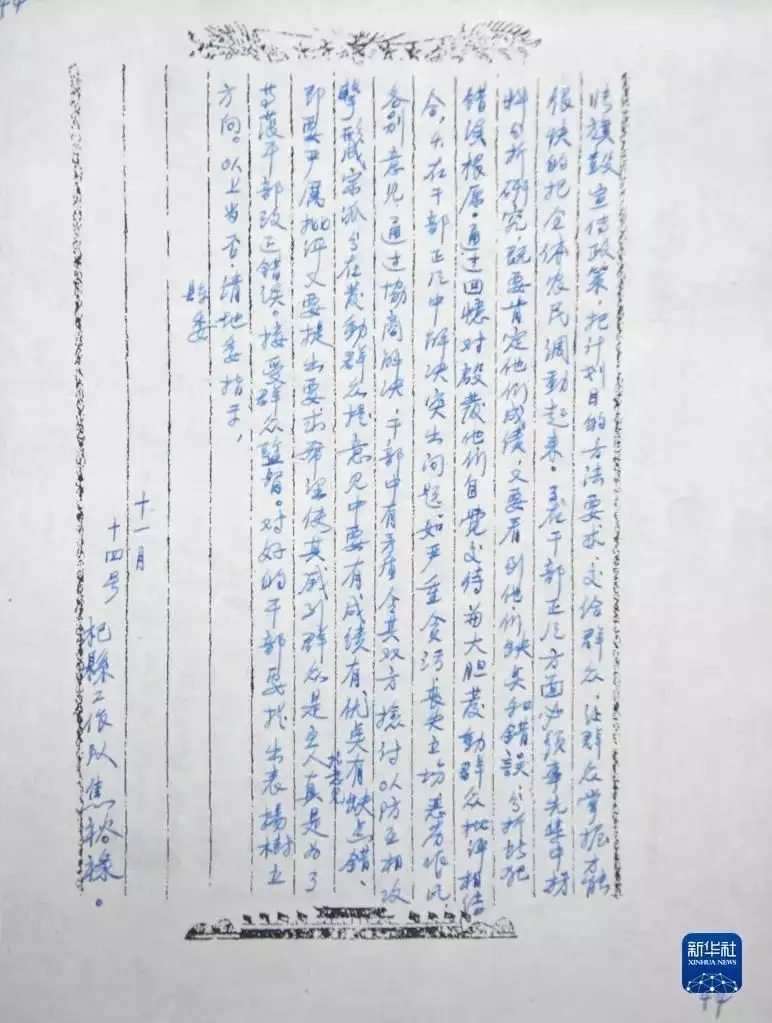 44
旗鼓宣传政策，把计划目的方法要求，交给群众，让群众掌握，才能
很快的把全体农民调动起来。3、在干部正风方面必须事先集中材
料分析研究，既要肯定他们成绩，又要看到他们缺点和错误，分析其犯
错误根原。通过回忆对，启发他们自觉交待为大胆发动群众批评相结
合，4、在干部正风中解决突出问题如严重贪污，丧失立场恶劣作风，
各别意见，通过协商解决，干部中有矛盾令其双方检讨以防互相攻
击形成宗派，5、在发动群众提意见中要有成绩有优点有缺点错，
即要严厉批评又要提出要求希望使其感到群众是主人提意见真是为了
帮落干部改正错误。接受群众监督。对好的干部要提出表揚树立
方向。以上当否，请地委指示，
县委
十一月
十四号
杞縣工作队焦裕禄。
新华社
XINHUA NEWS
44